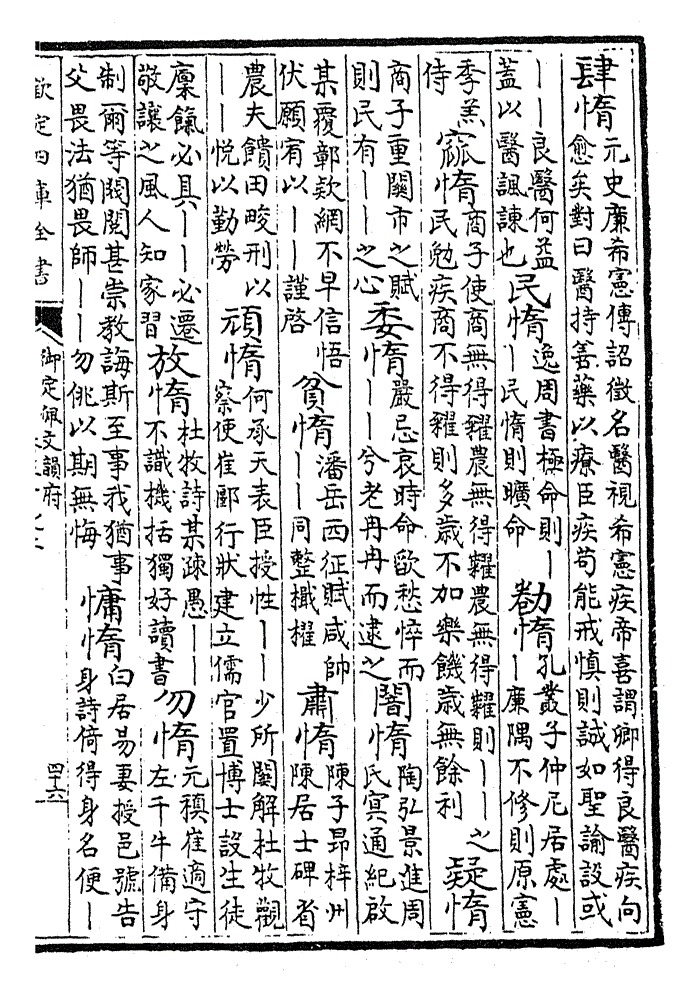 肆惰元史廉希憲傳詔徵名醫視希憲疾帝喜謂卿得良醫疾向愈矣對曰醫持善藥以療臣疾苟能戒慎則誠如聖諭設或
||良醫何益蓋以醫諷諫也 民惰逸周書極命則||民惰則曠命 勌惰孔叢子仲尼居處||廉隅不修則原憲
季羔侍 窳惰商子使商無得糴農無得糶農無得糶則||之民勉疾商不得糴則多歲不加樂饑歲無餘利 疑惰
商子重關市之賦則民有||之心 委惰嚴忌哀時命欿愁悴而||兮老冉冉而逮之 闇惰陶弘景進周氏冥通紀啟
某覆鄣欵網不早信悟伏願宥以||謹啓 貧惰潘岳西征賦咸帥||同整檝櫂 肅惰陳子昂梓州陳居士碑省
農夫饋田畯刑以||悦以勤勞 頑惰何承天表臣授性||少所關解杜牧觀察使崔郾行狀建立儒官置博士設生徒
廩餼必具||必遷敬讓之風人知家習 放惰杜牧詩某疎愚||不識機括獨好讀書 勿惰元稹崔適守左千牛備身
制爾等閥閲甚崇教誨斯至事我猶事父畏法猶畏師||勿佻以期無悔 慵惰白居易妻授邑號告身詩倚得身名便|
欽定四庫全書 御定佩文韻府 四十六